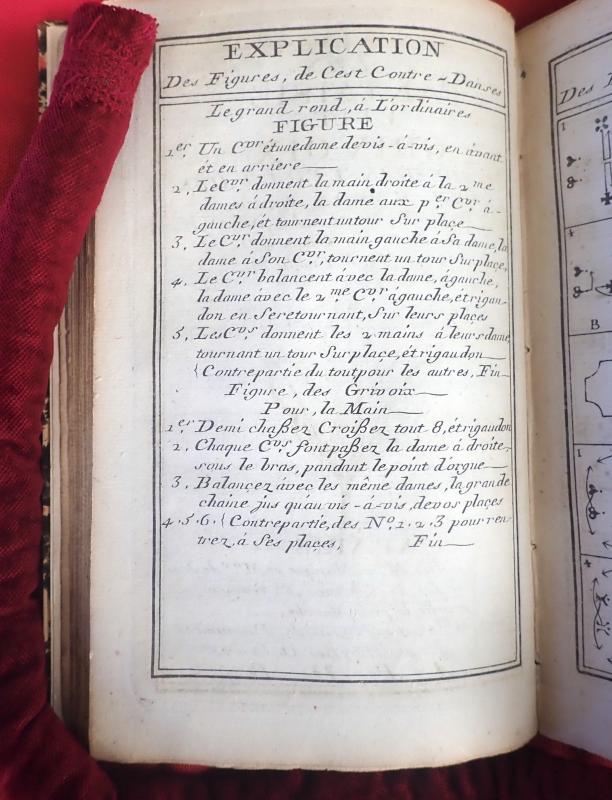 EXPLICATION
Des Figures, de Cest Contre-Danses
Le grand rond, á L'ordinaires
FIGURE
1er Un Cvr ét une dame de vis-á-vis, en ávant
ét en arriere
2, Le Cvr donnent la main droite á la 2me
dames á droite, la dame aux per Cvr á-
gauche, ét tournent un tour Sur plaçe
3, Le Cvr donnent la main gauche á Sa dame, la
dame á Son Cvr, tournent un tour Sur plaçe,
4, Le Cvr balancent ávec la dame, ágauche,
la dame ávec le 2me Cvr ágauche, ét rigau-
don en Seretournant, Sur leurs plaçes
5, Les Cvs donnent les 2 mains á leurs dame
tournant un tour Sur plaçe, ét rigaudon
{Contrepartie du tout pour les autres, Fin
Figure, des Grivoix
Pour, la Main
1er Demi chaßez Croißez tout 8, ét rigaudon
2, Chaque Cvs font paßez la dame á droite,
sous le bras, pandant le point d'orgue
3, Balançez ávec les même dames, la grande
chaine jus qu'au vis-á-vis, de vos plaçes
4.5.6.{Contrepartie, des No. 1.2.3 pour ren-
trez á Ses plaçes, Fin
Des
1
4
B
1
4